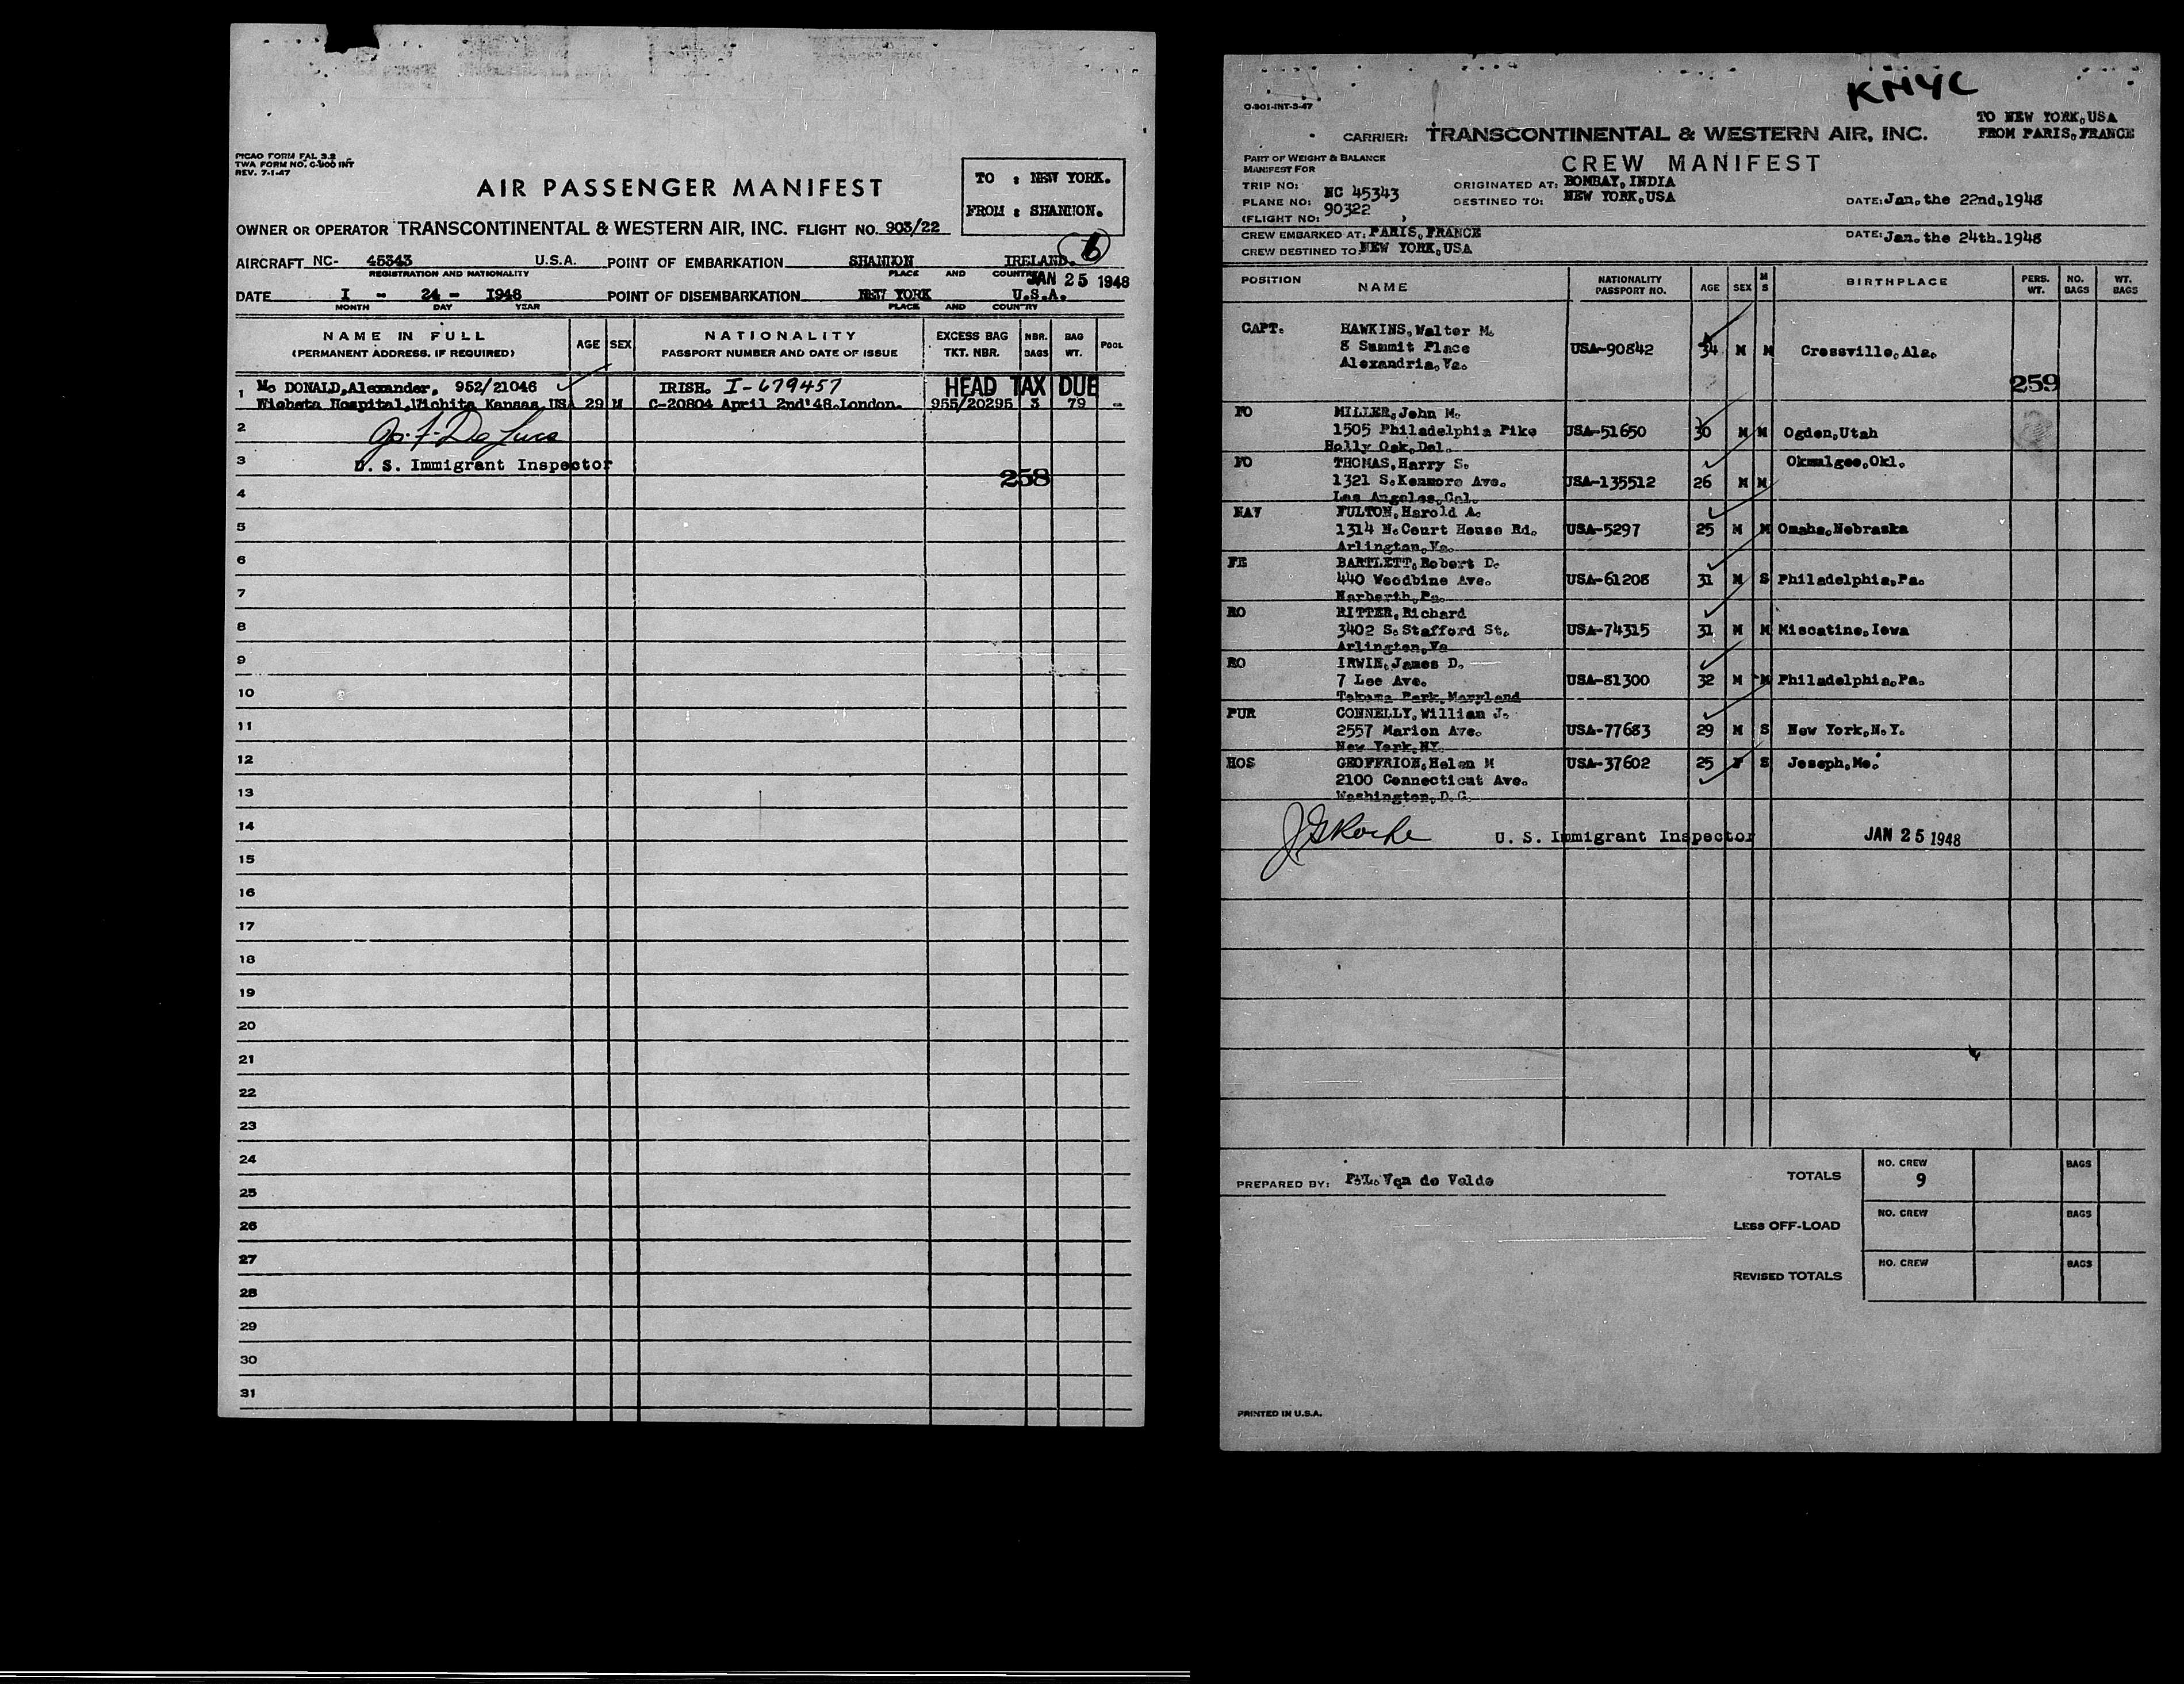 PICAO FORM FAL 3.2
TWA FORM NO. C-900 INT
REV. 7-1-47
TO : NEW YORK.
FROM : SHANNON.
AIR PASSENGER MANIFEST
OWNER OR OPERATOR TRANSCONTINENTAL & WESTERN AIR, INC. FLIGHT NO. 903/22
6
AIRCRAFT NC- 45343 U.S.A. POINT OF EMBARKATION SHANNON IRELAND.
REGISTRATION AND NATIONALITY PLACE AND COUNTRY
JAN 25 1948
DATE I - 24 - I948 POINT OF DISEMBARKATION NEW YORK U.S.A.
MONTH DAY YEAR PLACE AND COUNTRY
NAME IN FULL
(PERMANENT ADDRESS, IF REQUIRED)
AGE SEX
NATIONALITY
PASSPORT NUMBER AND DATE OF ISSUE
EXCESS BAG
TKT. NBR.
NBR.
BAGS
BAG
WT.
POOL
1 Mc DONALD, Alexander, 952/21046 IRISH. I-679457 HEAD TAX DUE
Wichata Hospital, Wichita Kansas USA 29 M C-20804 April 2nd'48.London. 955/20295 3 79 -
2
U. S. Immigrant Inspector
3
258
4
5
6
7
8
9
10
11
12
13
14
15
16
17
18
19
20
21
22
23
24
25
26
27
28
29
30
31
KNYC
O-901-INT-3-47
TO NEW YORK, USA
FROM PARIS, FRANCE
CARRIER: TRANSCONTINENTAL & WESTERN AIR, INC.
PART OF WEIGHT & BALANCE
MANIFEST FOR
CREW MANIFEST
TRIP NO:
PLANE NO: NC 45343
(FLIGHT NO: 90322 ,
ORIGINATED AT: BOMBAY, INDIA
DESTINED TO: NEW YORK, USA
DATE: Jan. the 22nd, 1948
CREW EMBARKED AT: PARIS, FRANCE
CREW DESTINED TO NEW YORK, USA
DATE: Jan. the 24th. 1948
POSITION NAME NATIONALITY PASSPORT NO. AGE SEX M S BIRTHPLACE PERS. WT. NO. BAGS WT. BAGS
CAPT. HAWKINS, Walter M.
8 Summit Place USA-90842 34 M M Cressville, Ala.
Alexandria, Va.
259
FO MILLER, John M.
1505 Philadelphia Pike USA-51650 30 M M Ogden, Utah
Holly Oak, Del.
FO THOMAS, Harry S. Okmulgee, Okl.
1321 S. Kenmore Ave. USA-135512 26 M M
Los Angeles, Cal.
NAV FULTON, Harold A.
1314 N. Court House Rd. USA-5297 25 M M Omaha, Nebraska
Arlington, Va.
FE BARTLETT, Robert D.
440 Woodbine Ave. USA-61208 31 M S Philadelphia, Pa.
Narberth, Pa.
RO RITTER, Richard
3402 S. Stafford St. USA-74315 31 M M Miscatine, Iowa
Arlington, Va
RO IRWIN, James D.
7 Lee Ave. USA-81300 32 M M Philadelphia, Pa.
Takoma Park, Maryland
PUR CONNELLY, Willian J.
2557 Marion Ave. USA-77683 29 M S New York, N.Y.
New York, NY.
HOS GEOFFRION, Helen M USA-37602 25 F S Joseph, Mo.
2100 Connecticut Ave.
Washington, D.C.
U. S. Immigrant Inspector JAN 25 1948
PREPARED BY: P.L. Van de Velde
TOTALS NO. CREW 9 BAGS
LESS OFF-LOAD NO. CREW BAGS
REVISED TOTALS NO. CREW BAGS
PRINTED IN U.S.A.